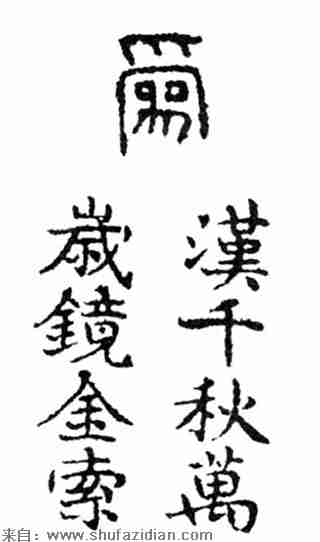 漢千秋萬
歲鏡金索
来自：www.shufazidian.com